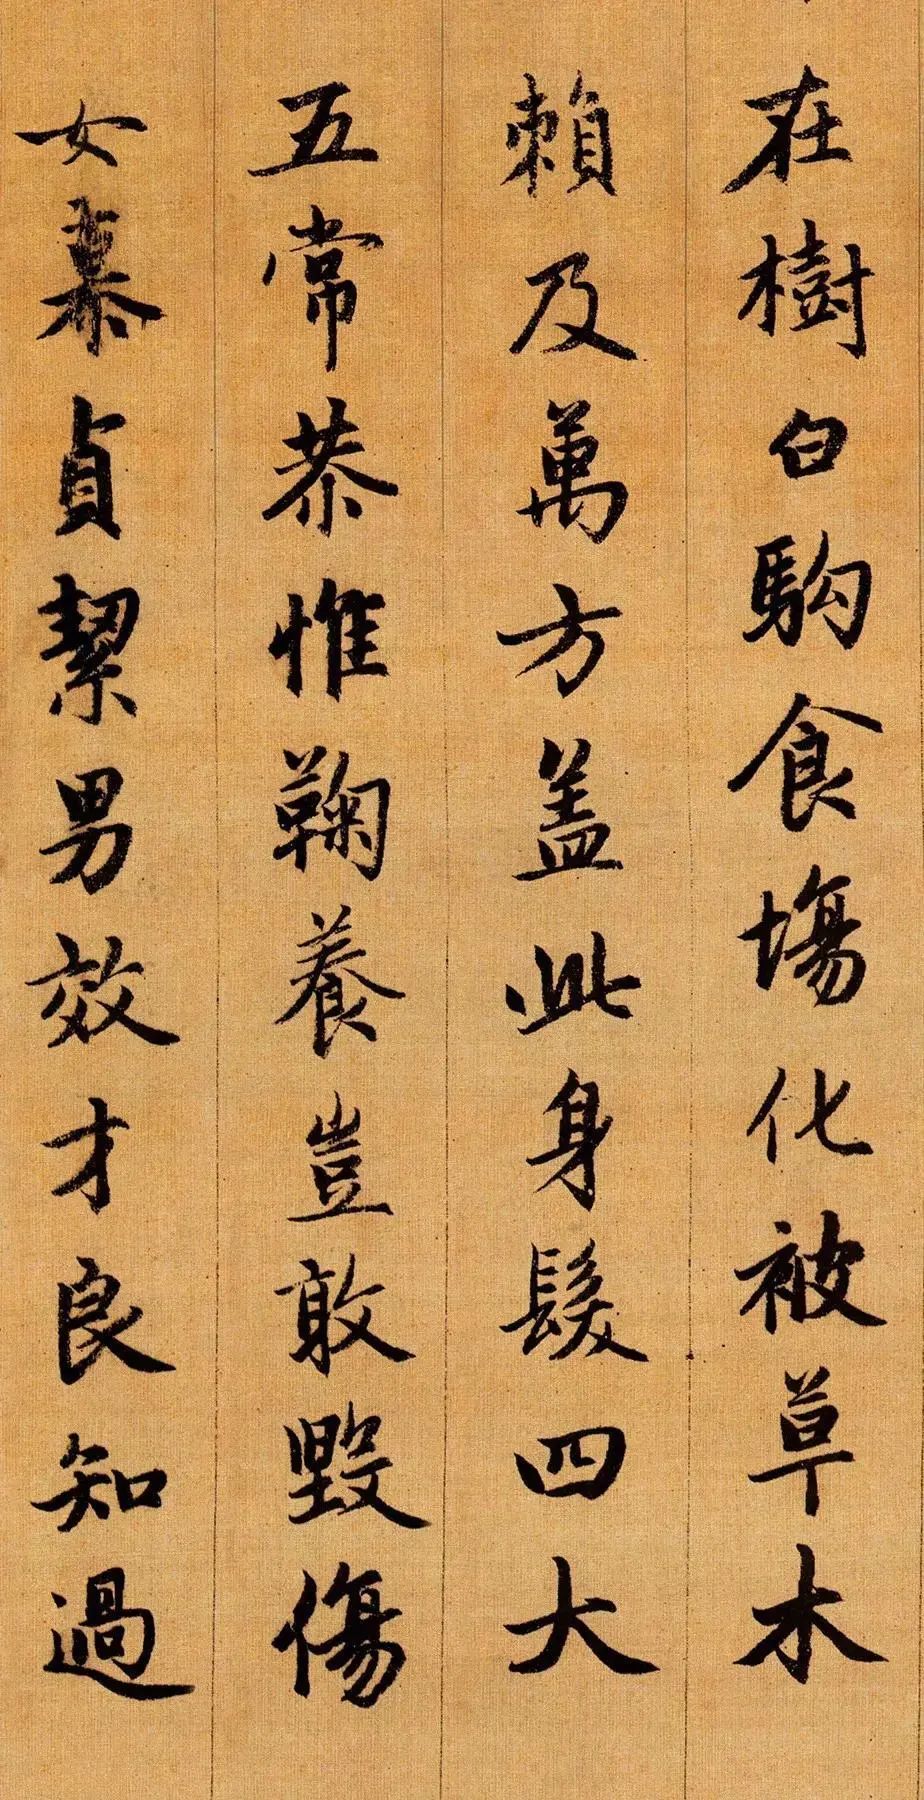 在樹白駒食場化被草木
賴及萬方蓋此身髮四大
五常恭惟鞠養豈敢毀傷
女慕貞絜男效才良知過